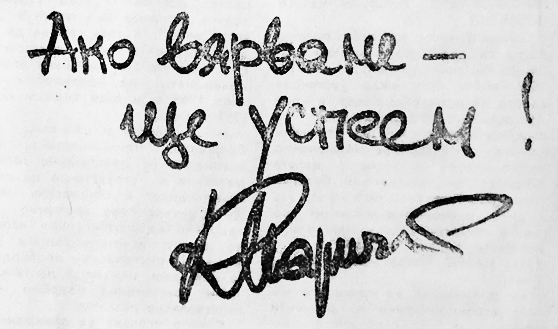 Ако вярваме –
ще успеем!